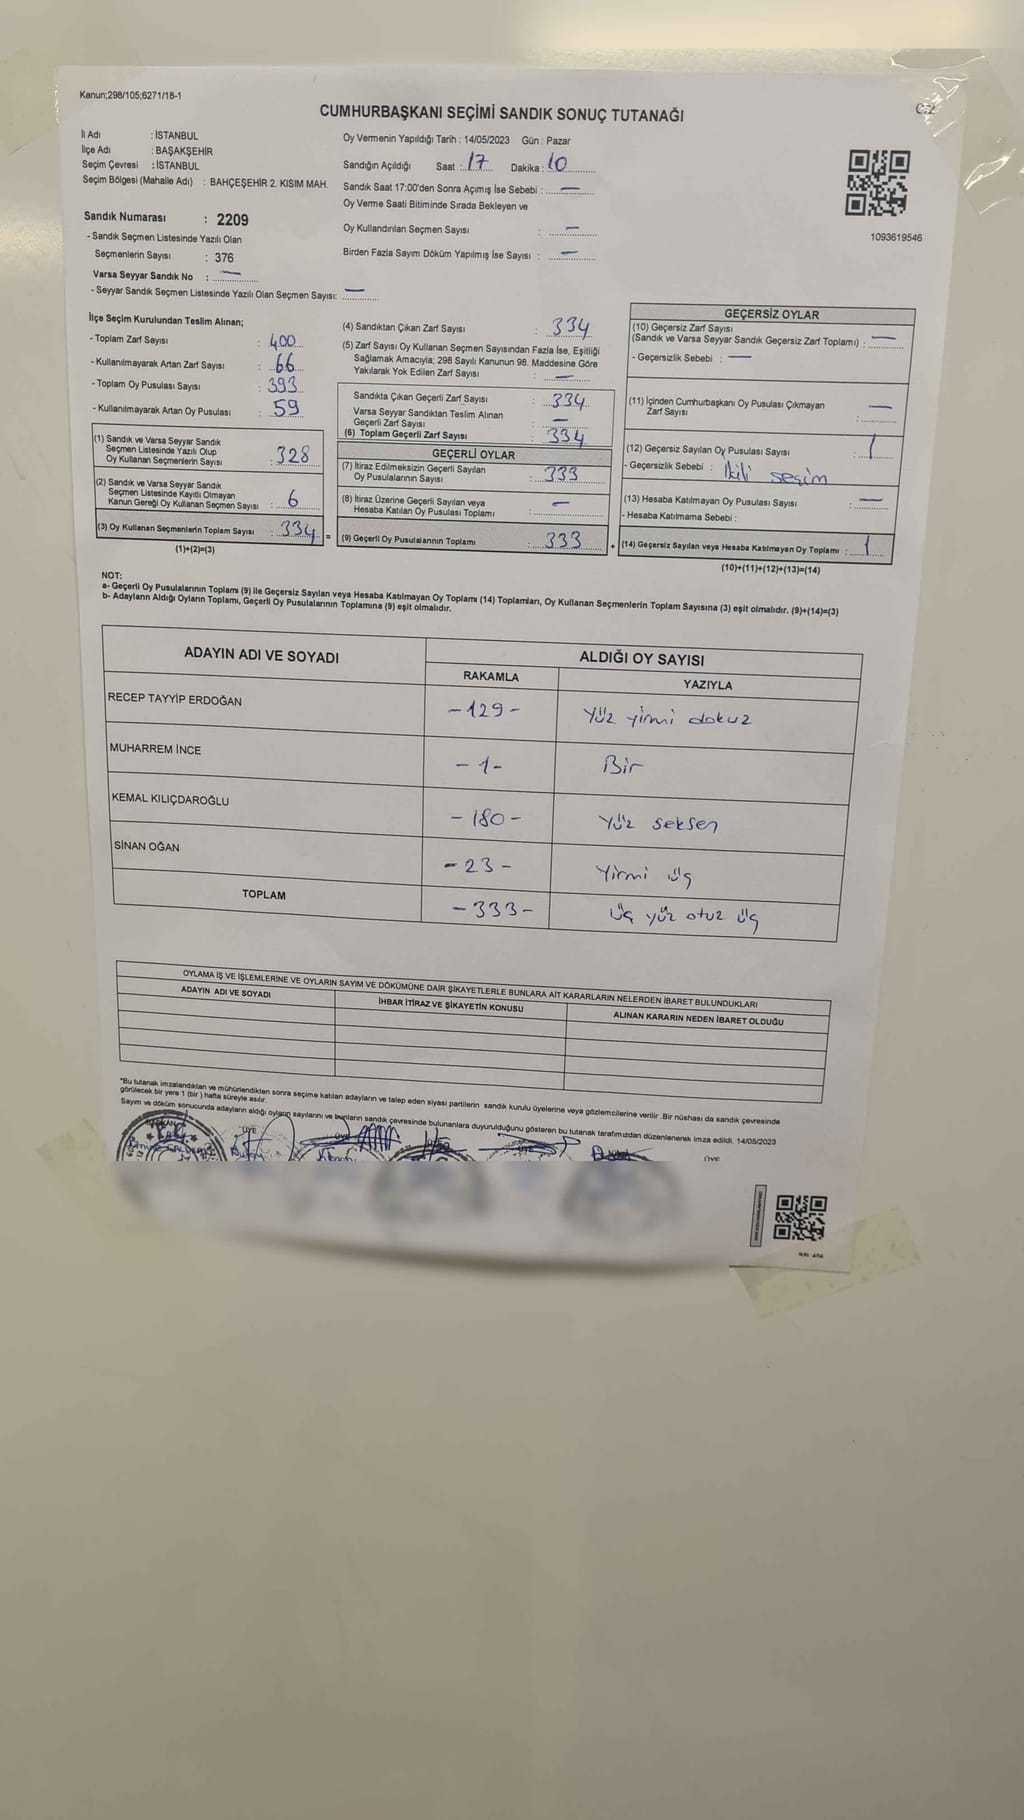 Kanun;298/105;6271/18-1
CUMHURBAŞKANI SEÇİMİ SANDIK SONUÇ TUTANAĞI
C-2
İl Adı : İSTANBUL
İlçe Adı : BAŞAKŞEHİR
Seçim Çevresi : İSTANBUL
Seçim Bölgesi (Mahalle Adı) : BAHÇEŞEHİR 2. KISIM MAH.
Oy Vermenin Yapıldığı Tarih : 14/05/2023 Gün : Pazar
Sandığın Açıldığı Saat : 17 Dakika : 10
Sandık Saat 17:00'den Sonra Açımış İse Sebebi : —
Oy Verme Saati Bitiminde Sırada Bekleyen ve
Oy Kullandırılan Seçmen Sayısı : —
Birden Fazla Sayım Döküm Yapılmış İse Sayısı : —
1093619546
Sandık Numarası : 2209
- Sandık Seçmen Listesinde Yazılı Olan
Seçmenlerin Sayısı : 376
Varsa Seyyar Sandık No : —
- Seyyar Sandık Seçmen Listesinde Yazılı Olan Seçmen Sayısı: —
İlçe Seçim Kurulundan Teslim Alınan;
- Toplam Zarf Sayısı : 400
- Kullanılmayarak Artan Zarf Sayısı : 66
- Toplam Oy Pusulası Sayısı : 393
- Kullanılmayarak Artan Oy Pusulası : 59
(1) Sandık ve Varsa Seyyar Sandık
Seçmen Listesinde Yazılı Olup
Oy Kullanan Seçmenlerin Sayısı : 328
(2) Sandık ve Varsa Seyyar Sandık
Seçmen Listesinde Kayıtlı Olmayan
Kanun Gereği Oy Kullanan Seçmen Sayısı : 6
(3) Oy Kullanan Seçmenlerin Toplam Sayısı : 334
(1)+(2)=(3)
(4) Sandıktan Çıkan Zarf Sayısı : 334
(5) Zarf Sayısı Oy Kullanan Seçmen Sayısından Fazla İse, Eşitliği
Sağlamak Amacıyla; 298 Sayılı Kanunun 98. Maddesine Göre
Yakılarak Yok Edilen Zarf Sayısı : —
Sandıkta Çıkan Geçerli Zarf Sayısı : 334
Varsa Seyyar Sandıktan Teslim Alınan
Geçerli Zarf Sayısı : —
(6) Toplam Geçerli Zarf Sayısı : 334
GEÇERLİ OYLAR
(7) İtiraz Edilmeksizin Geçerli Sayılan
Oy Pusulalarının Sayısı : 333
(8) İtiraz Üzerine Geçerli Sayılan veya
Hesaba Katılan Oy Pusulası Toplamı : —
= (9) Geçerli Oy Pusulalarının Toplamı : 333
GEÇERSİZ OYLAR
(10) Geçersiz Zarf Sayısı
(Sandık ve Varsa Seyyar Sandık Geçersiz Zarf Toplamı) : —
- Geçersizlik Sebebi : —
(11) İçinden Cumhurbaşkanı Oy Pusulası Çıkmayan
Zarf Sayısı : —
(12) Geçersiz Sayılan Oy Pusulası Sayısı : 1
- Geçersizlik Sebebi : İkili seçim
(13) Hesaba Katılmayan Oy Pusulası Sayısı : —
- Hesaba Katılmama Sebebi :
+ (14) Geçersiz Sayılan veya Hesaba Katılmayan Oy Toplamı : 1
(10)+(11)+(12)+(13)=(14)
NOT:
a- Geçerli Oy Pusulalarının Toplamı (9) ile Geçersiz Sayılan veya Hesaba Katılmayan Oy Toplamı (14) Toplamları, Oy Kullanan Seçmenlerin Toplam Sayısına (3) eşit olmalıdır. (9)+(14)=(3)
b- Adayların Aldığı Oyların Toplamı, Geçerli Oy Pusulalarının Toplamına (9) eşit olmalıdır.
ADAYIN ADI VE SOYADI
ALDIĞI OY SAYISI
RAKAMLA YAZIYLA
RECEP TAYYİP ERDOĞAN -129- Yüz yirmi dokuz
MUHARREM İNCE -1- Bir
KEMAL KILIÇDAROĞLU -180- Yüz seksen
SİNAN OĞAN -23- Yirmi üç
TOPLAM -333- Üç yüz otuz üç
OYLAMA İŞ VE İŞLEMLERİNE VE OYLARIN SAYIM VE DÖKÜMÜNE DAİR ŞİKAYETLERLE BUNLARA AİT KARARLARIN NELERDEN İBARET BULUNDUKLARI
ADAYIN ADI VE SOYADI İHBAR İTİRAZ VE ŞİKAYETİN KONUSU ALINAN KARARIN NEDEN İBARET OLDUĞU
"Bu tutanak imzalandıktan ve mühürlendikten sonra seçime katılan adayların ve talep eden siyasi partilerin sandık kurulu üyelerine veya gözlemcilerine verilir. Bir nüshası da sandık çevresinde
görülecek bir yere 1 (bir) hafta süreyle asılır.
Sayım ve döküm sonucunda adayların aldığı oyların sayılarını ve bunların sandık çevresinde bulunanlara duyurulduğunu gösteren bu tutanak tarafımızdan düzenlenerek imza edildi. 14/05/2023
BAŞKAN ÜYE ÜYE ÜYE ÜYE ÜYE